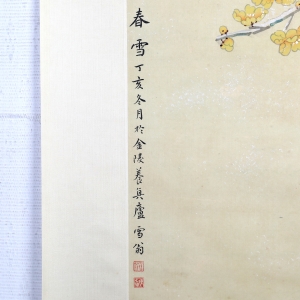 春雪
丁亥冬月於金陵養吳廬雪翁